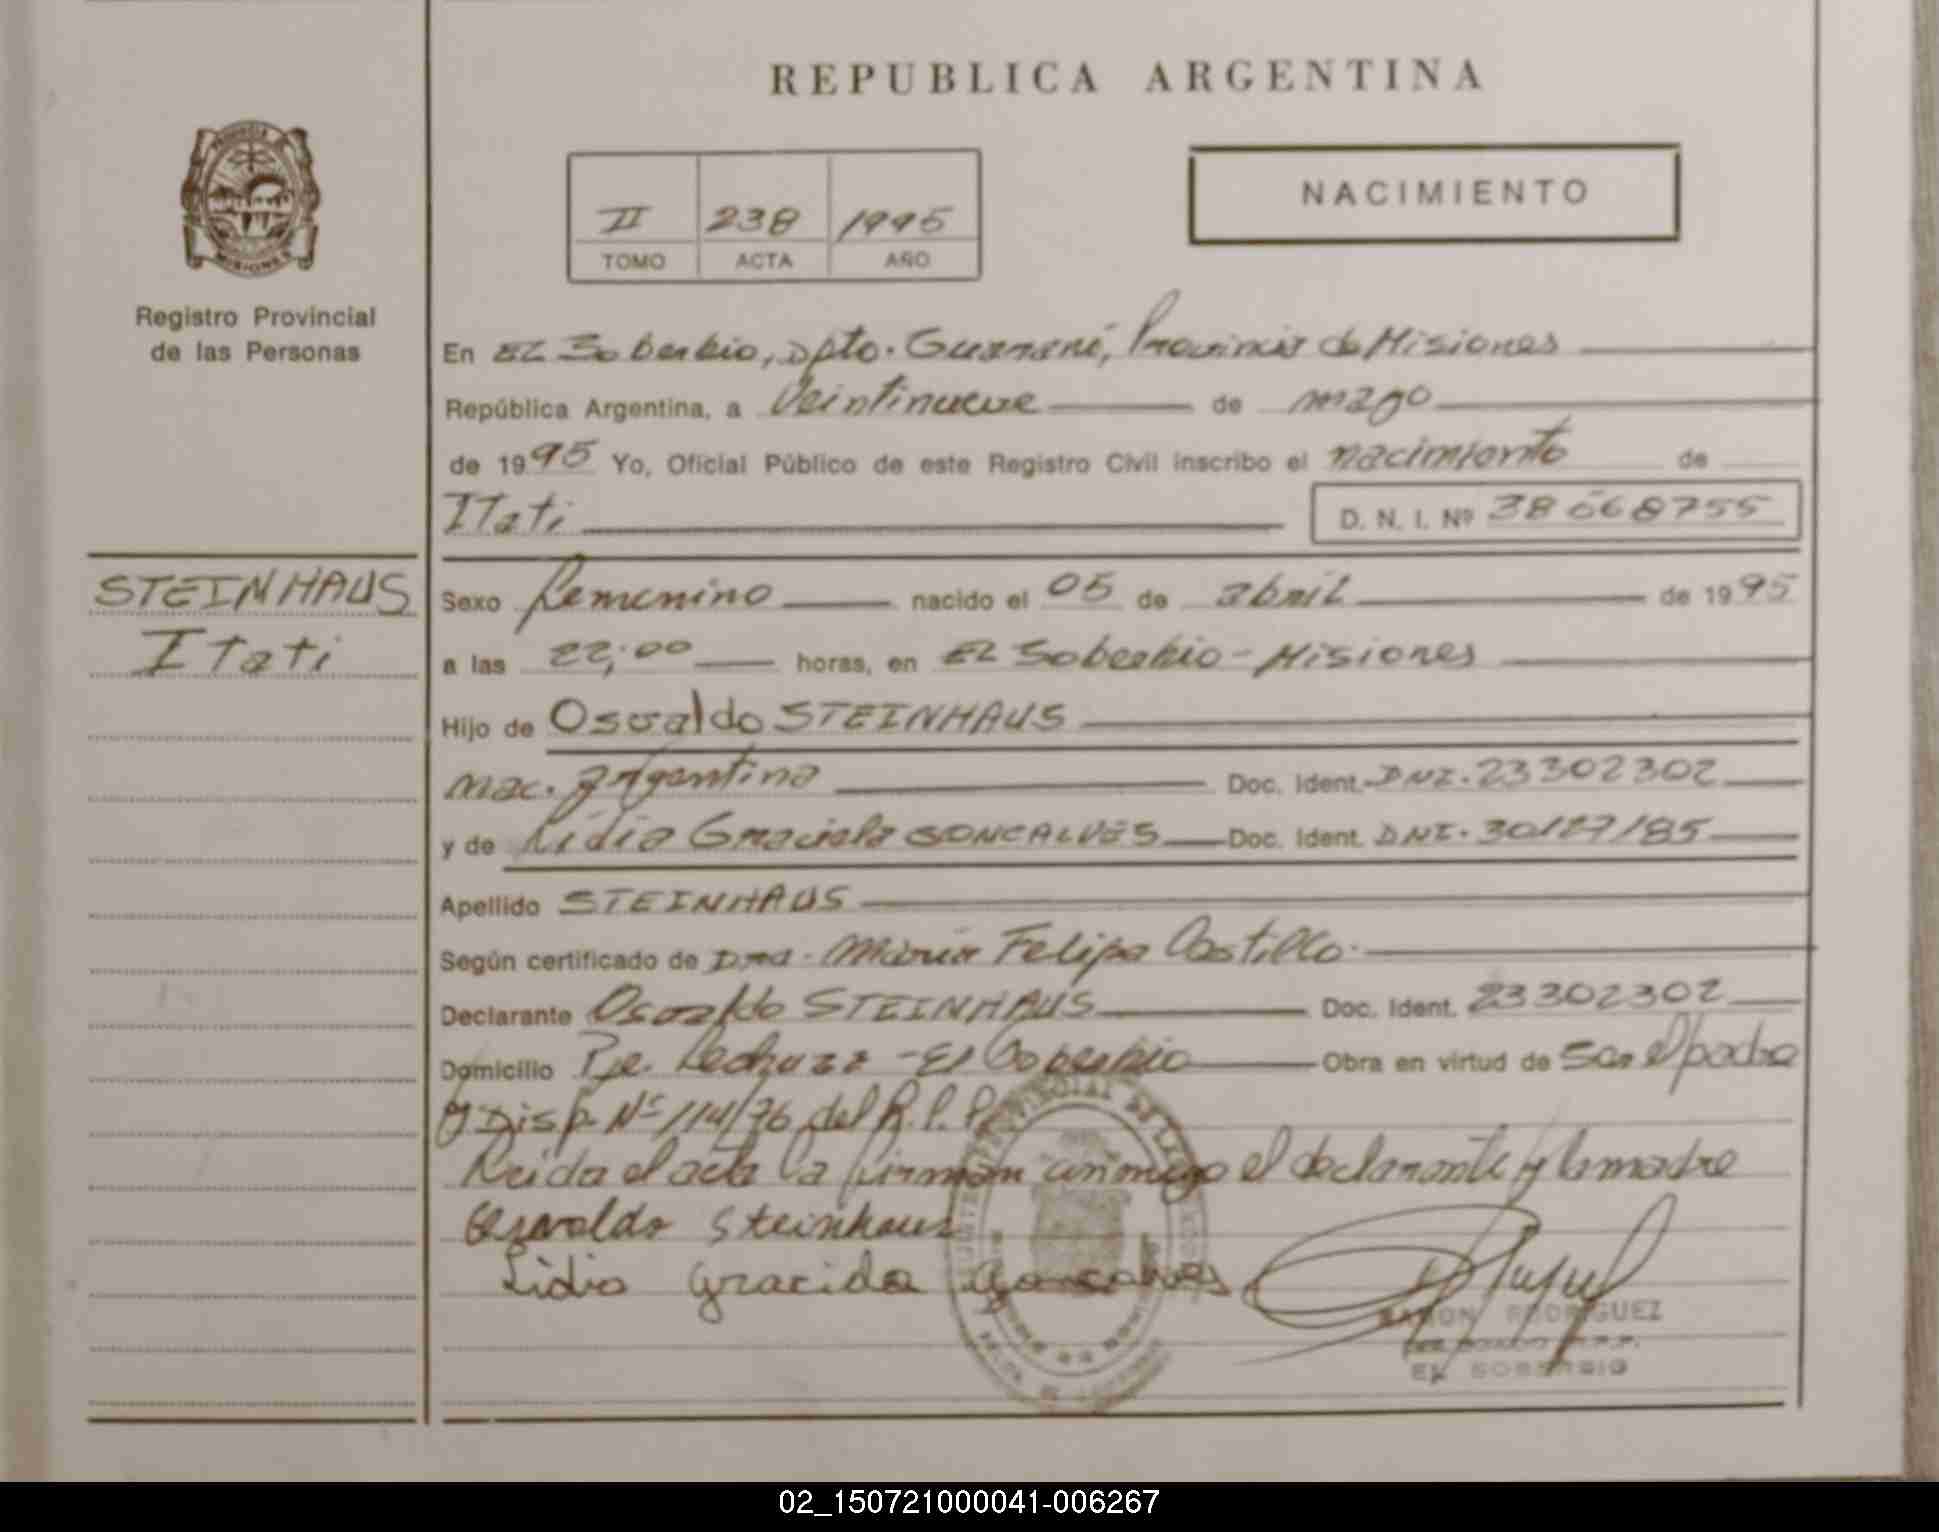 REPUBLICA ARGENTINA
NACIMIENTO
II 238 1995
TOMO ACTA AÑO
MISIONES
Registro Provincial
de las Personas
En EL Soberbio, Dpto. Guaraní, Provincia de Misiones
República Argentina, a Veintinueve de mayo
de 1995 Yo, Oficial Público de este Registro Civil inscribo el nacimiento de
Itati D. N. I. Nº 38068755
STEINHAUS
Itati
Sexo femenino nacido el 05 de abril de 1995
a las 22,00 horas, en EL Soberbio - Misiones
Hijo de Osvaldo STEINHAUS
nac. argentina Doc. Ident. DNI. 23302302
y de Lidia Graciela GONCALVES Doc. Ident. DNI. 30127185
Apellido STEINHAUS
Según certificado de Dra. María Felipa Castillo.
Declarante Osvaldo STEINHAUS Doc. Ident. 23302302
Domicilio Pje. Lechuza - El Soberbio Obra en virtud de Ser el padre
y Disp. Nº 114/76 del R.P.P.
Leida el acta la firman conmigo el declarante y la madre
Osvaldo Steinhaus
Lidia Gracida Gonsalves
RAMON RODRIGUEZ
EL SOBERBIO
02_150721000041-006267